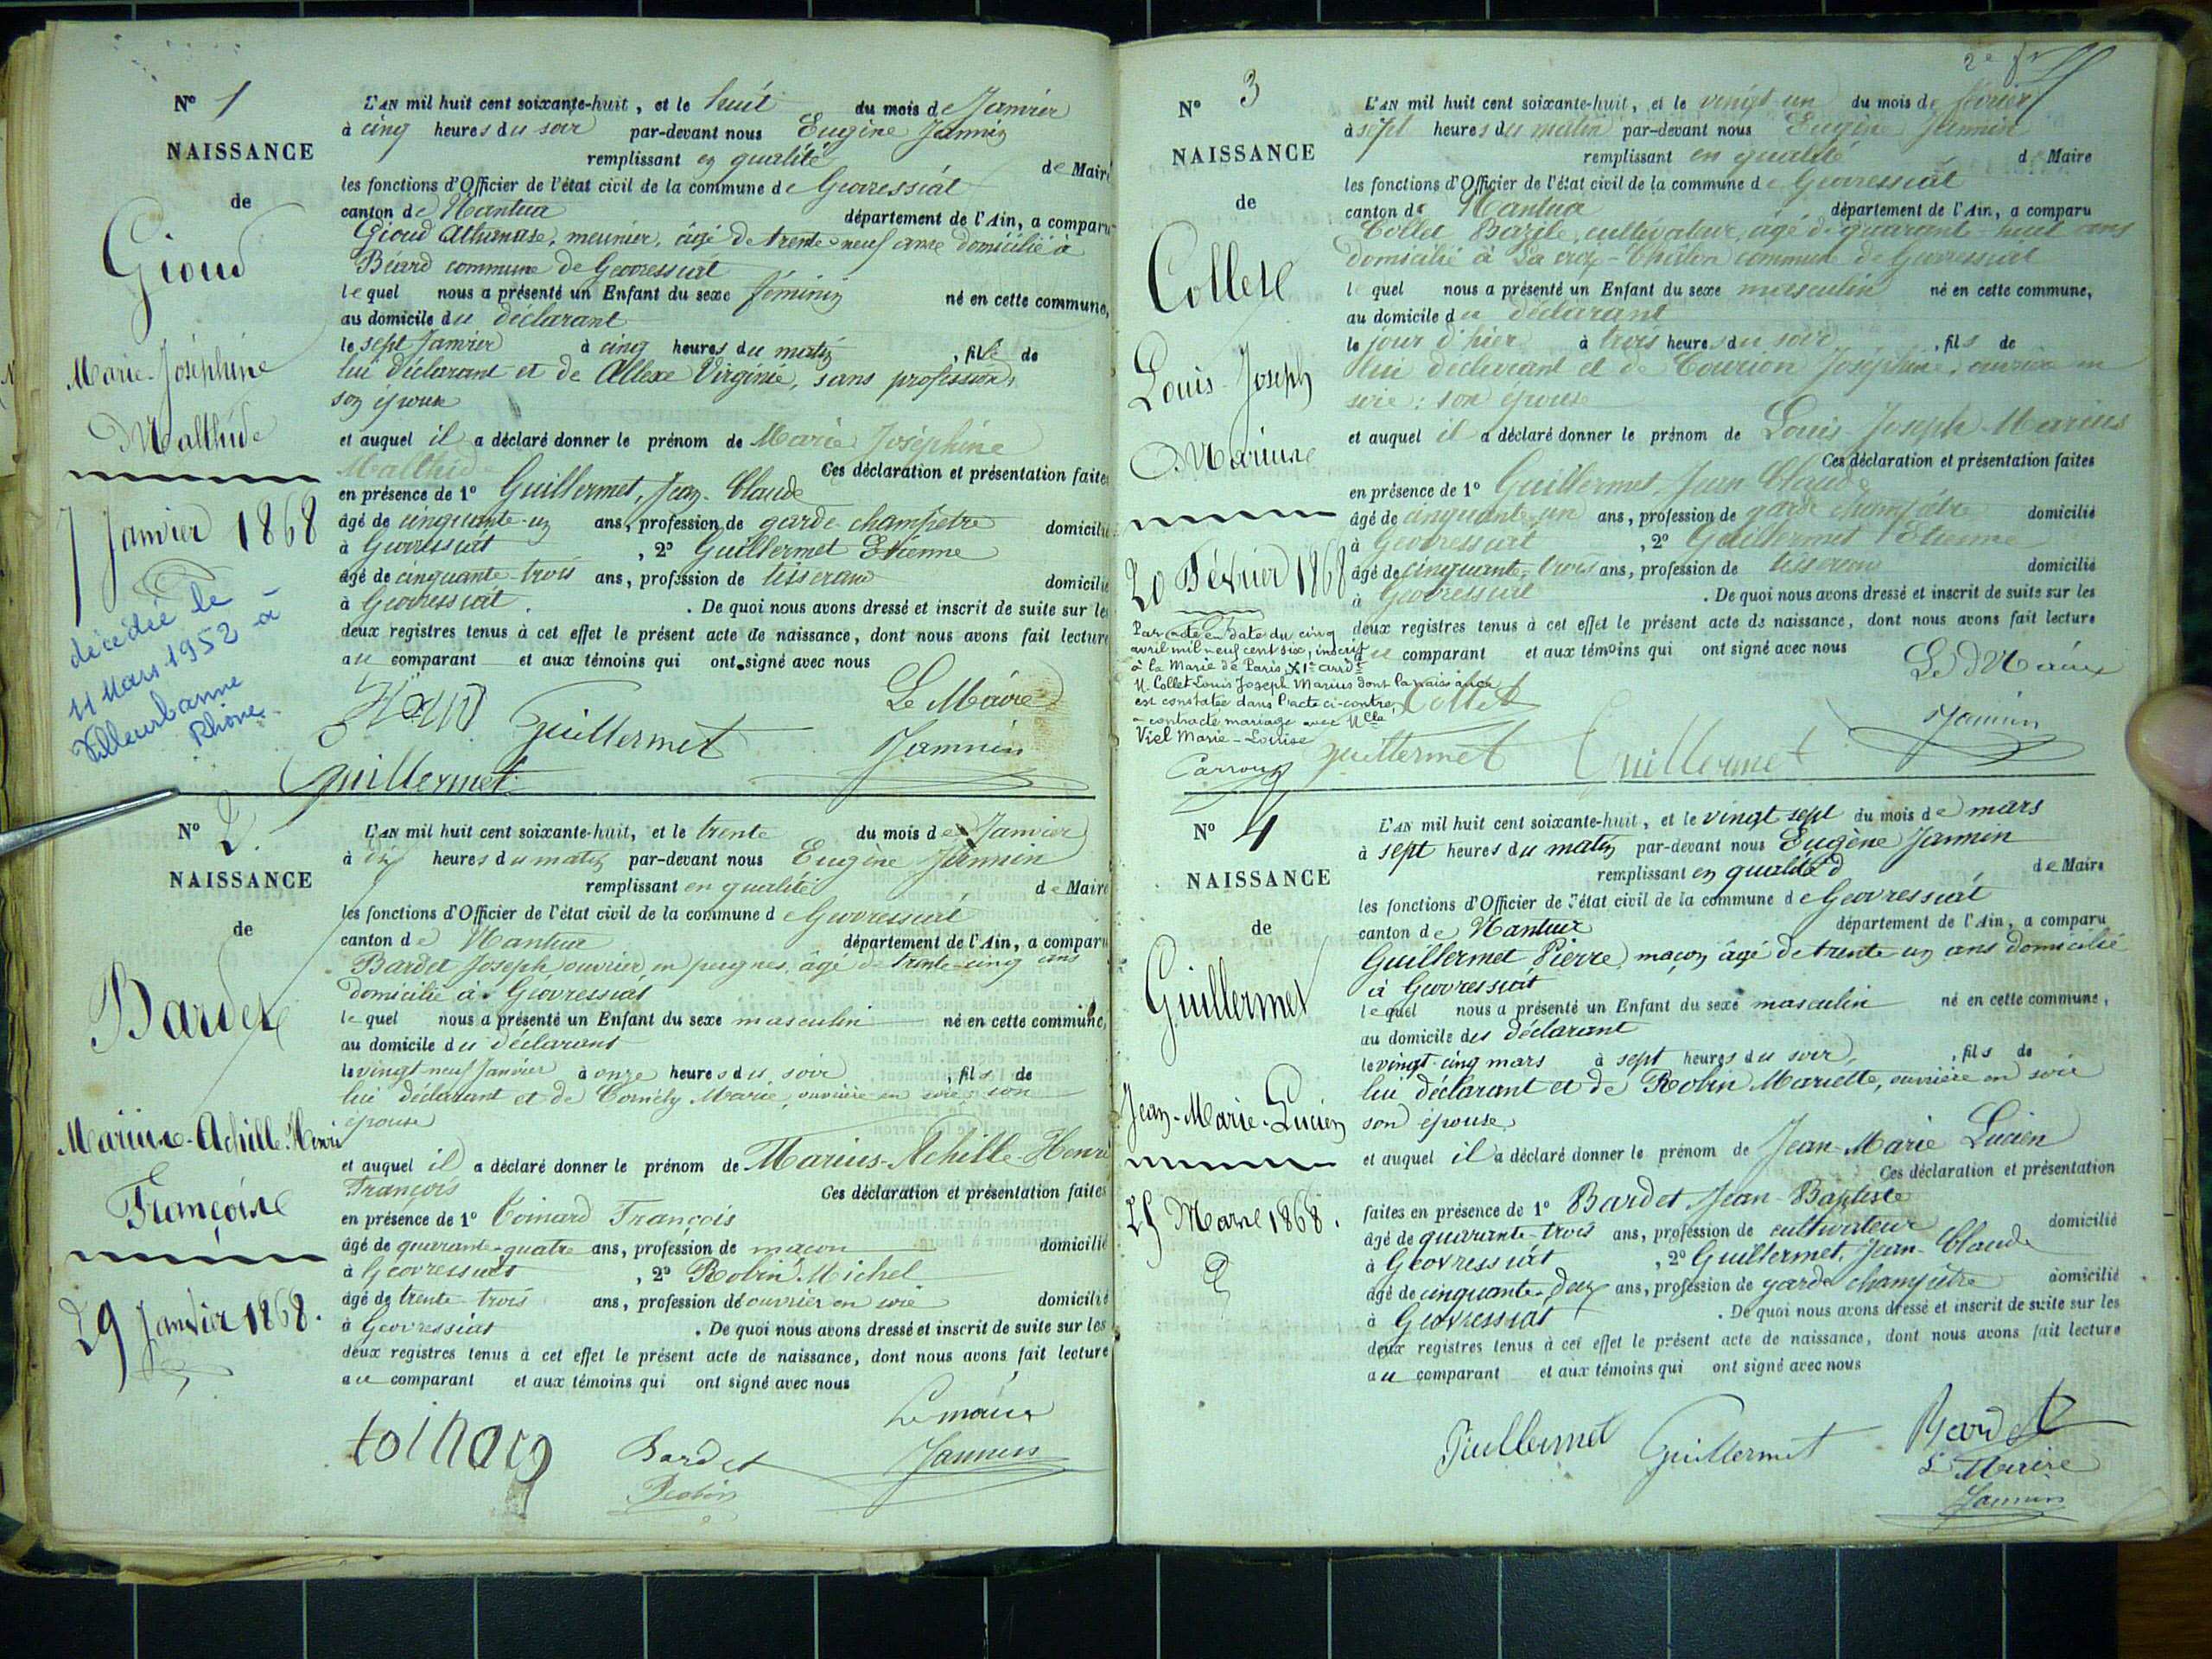 N° 1
NAISSANCE
de
Gioud
Marie-Joséphine
Malthide
7 Janvier 1868
décédée le
11 Mars 1952 à
Villeurbanne
Rhône
L'AN mil huit cent soixante-huit, et le huit du mois de Janvier
à cinq heures du soir par-devant nous Eugène Jannin
remplissant en qualité de Maire
les fonctions d'Officier de l'état civil de la commune de Géovressiat
canton de Nantua département de l'Ain, a comparu
Gioud Athanase, meunier, âgé de trente-neuf ans domicilié à
Béard commune de Géovressiat
lequel nous a présenté un Enfant du sexe féminin né en cette commune,
au domicile du déclarant
le sept Janvier à cinq heures du matin, fille de
lui déclarant et de Allexe Virginie, sans profession,
son épouse
et auquel il a déclaré donner le prénom de Marie Joséphine
Malthide Ces déclaration et présentation faites
en présence de 1° Guillermet, Jean-Claude
âgé de cinquante-un ans, profession de garde-champêtre domicilié
à Géovressiat, 2° Guillermet Etienne
âgé de cinquante-trois ans, profession de tisserand domicilié
à Géovressiat. De quoi nous avons dressé et inscrit de suite sur les
deux registres tenus à cet effet le présent acte de naissance, dont nous avons fait lecture
au comparant et aux témoins qui ont signé avec nous
Guillermet Le Maire
Jannin
Guillermet
N° 2.
NAISSANCE
de
Bardet
Marius-Achille-Henri
François
29 Janvier 1868.
L'AN mil huit cent soixante-huit, et le trente du mois de Janvier
à dix heures du matin par-devant nous Eugène Jannin
remplissant en qualité de Maire
les fonctions d'Officier de l'état civil de la commune de Géovressiat
canton de Nantua département de l'Ain, a comparu
Bardet Joseph ouvrier en peignes, âgé de trente-cinq ans
domicilié à Géovressiat
lequel nous a présenté un Enfant du sexe masculin né en cette commune,
au domicile du déclarant
le vingt-neuf Janvier à onze heures du soir, fils de
lui déclarant et de Cornély Marie, ouvrière en soie son
épouse
et auquel il a déclaré donner le prénom de Marius-Achille-Henri
François Ces déclaration et présentation faites
en présence de 1° Toinard François
âgé de quarante-quatre ans, profession de maçon domicilié
à Géovressiat, 2° Robin Michel
âgé de trente-trois ans, profession de ouvrier en soie domicilié
à Géovressiat. De quoi nous avons dressé et inscrit de suite sur les
deux registres tenus à cet effet le présent acte de naissance, dont nous avons fait lecture
au comparant et aux témoins qui ont signé avec nous
Le maire
toinard Bardet Jannin
Robin
N° 3
NAISSANCE
de
Collet
Louis-Joseph
Marius
20 Février 1868
Par acte en date du cinq
avril mil neuf cent six, inscrit
à la Mairie de Paris, XIe arrdt
M. Collet Louis Joseph Marius dont la naissance
est constatée dans l'acte ci-contre,
a contracté mariage avec Mlle
Viel Marie-Louise
L'AN mil huit cent soixante-huit, et le vingt-un du mois de février
à sept heures du matin par-devant nous Eugène Jannin
remplissant en qualité de Maire
les fonctions d'Officier de l'état civil de la commune de Géovressiat
canton de Nantua département de l'Ain, a comparu
Collet Bazile, cultivateur, âgé de quarante-huit ans
domicilié à La croix-Châlon commune de Géovressiat
lequel nous a présenté un Enfant du sexe masculin né en cette commune,
au domicile du déclarant
le jour d'hier à trois heures du soir, fils de
lui déclarant et de Tourion Joséphine, ouvrière en
soie: son épouse
et auquel il a déclaré donner le prénom de Louis-Joseph Marius
Ces déclaration et présentation faites
en présence de 1° Guillermet, Jean Claude
âgé de cinquante-un ans, profession de garde champêtre domicilié
à Géovressiat, 2° Guillermet Etienne
âgé de cinquante-trois ans, profession de tisserand domicilié
à Géovressiat. De quoi nous avons dressé et inscrit de suite sur les
deux registres tenus à cet effet le présent acte de naissance, dont nous avons fait lecture
au comparant et aux témoins qui ont signé avec nous
Le Maire
Collet
Jannin
guillermet Guillermet
N° 4
NAISSANCE
de
Guillermet
Jean-Marie-Lucien
25 Mars 1868.
L'AN mil huit cent soixante-huit, et le vingt sept du mois de mars
à sept heures du matin par-devant nous Eugène Jannin
remplissant en qualité de Maire
les fonctions d'Officier de l'état civil de la commune de Géovressiat
canton de Nantua département de l'Ain, a comparu
Guillermet Pierre, maçon âgé de trente-un ans domicilié
à Géovressiat
lequel nous a présenté un Enfant du sexe masculin né en cette commune,
au domicile du déclarant
le vingt-cinq mars à sept heures du soir, fils de
lui déclarant et de Robin Mariette, ouvrière en soie
son épouse
et auquel il a déclaré donner le prénom de Jean-Marie Lucien
Ces déclaration et présentation
faites en présence de 1° Bardet Jean-Baptiste
âgé de quarante-trois ans, profession de cultivateur domicilié
à Géovressiat, 2° Guillermet, Jean-Claude
âgé de cinquante-deux ans, profession de garde champêtre domicilié
à Géovressiat. De quoi nous avons dressé et inscrit de suite sur les
deux registres tenus à cet effet le présent acte de naissance, dont nous avons fait lecture
au comparant et aux témoins qui ont signé avec nous
Guillermet Guillermet Bardet
Le Maire
Jannin